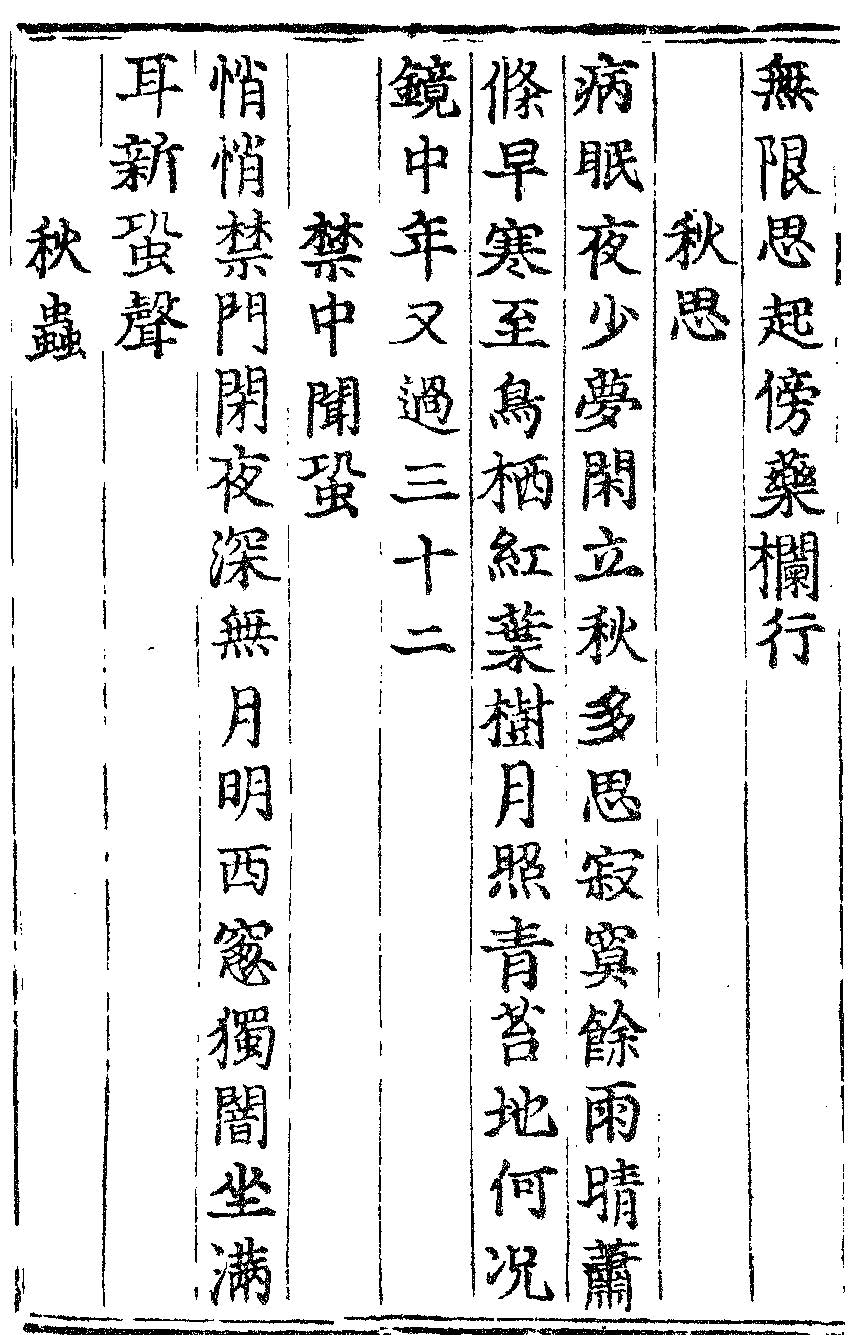 無限思起傍藥欄行
秋思
病眠夜少夢閑立秋多思寂寞餘雨晴蕭
條早寒至鳥栖紅葉樹月照青苔地何况
鏡中年又過三十二
禁中聞蛩
悄悄禁門閉夜深無月明西窻獨闇坐滿
耳新蛩聲
秋蟲